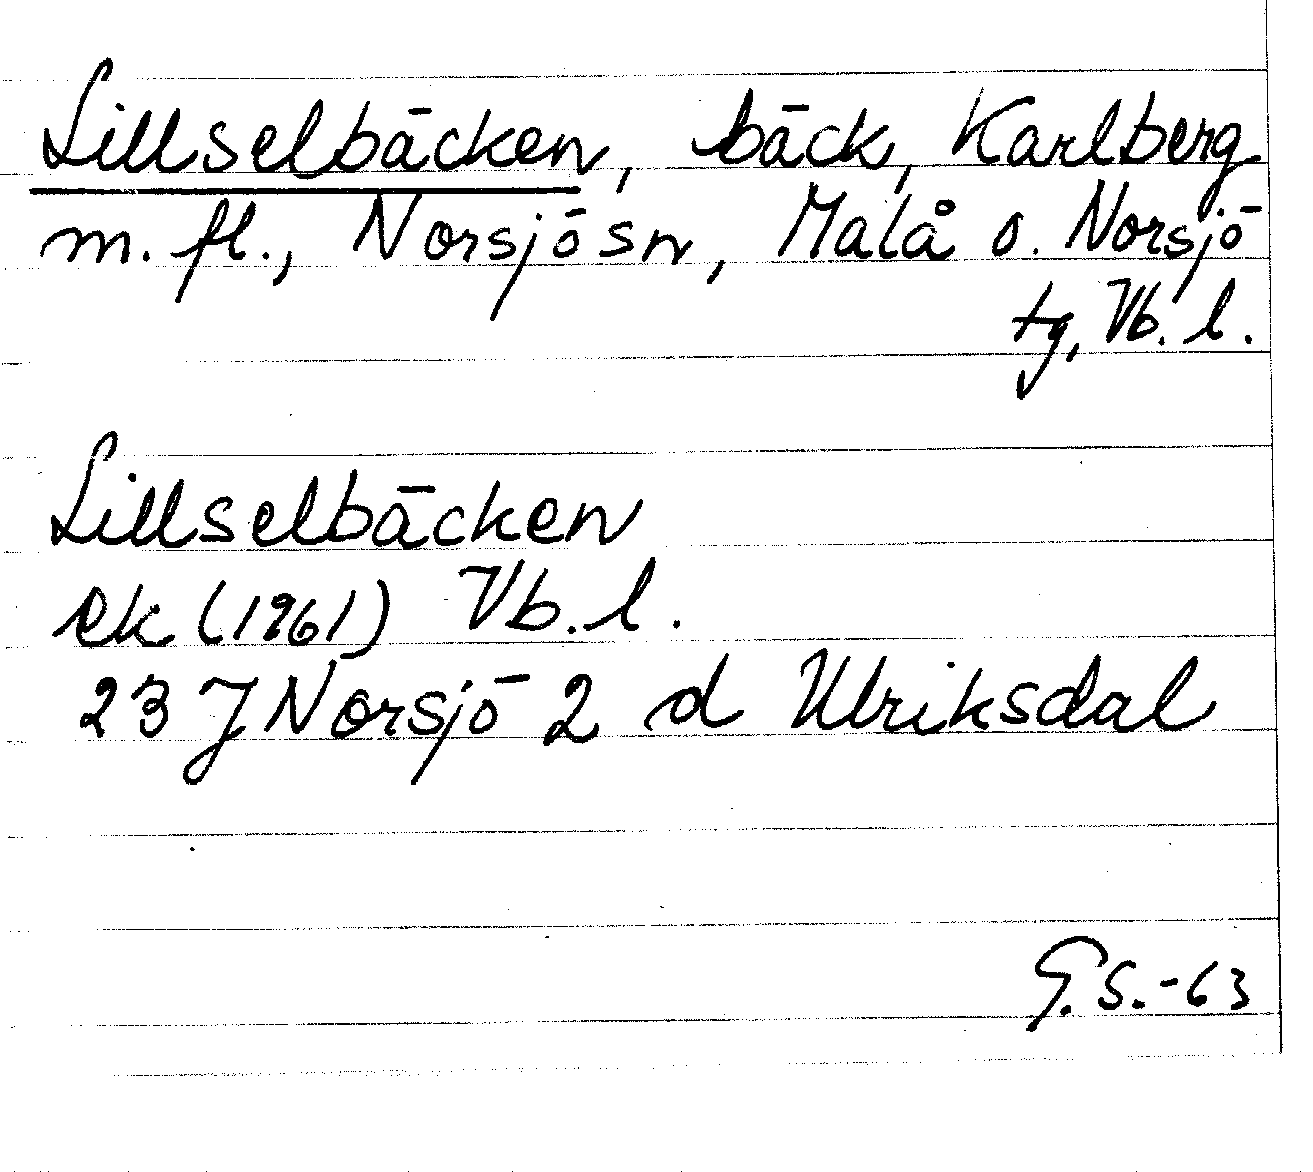 Lillselbäcken, bäck, Karlberg
m. fl., Norsjö sn, Malå o. Norsjö
tg, Vb. l.
Lillselbäcken
ek (1961) Vb. l.
23 J Norsjö 2 d Ulriksdal
G. S. -63